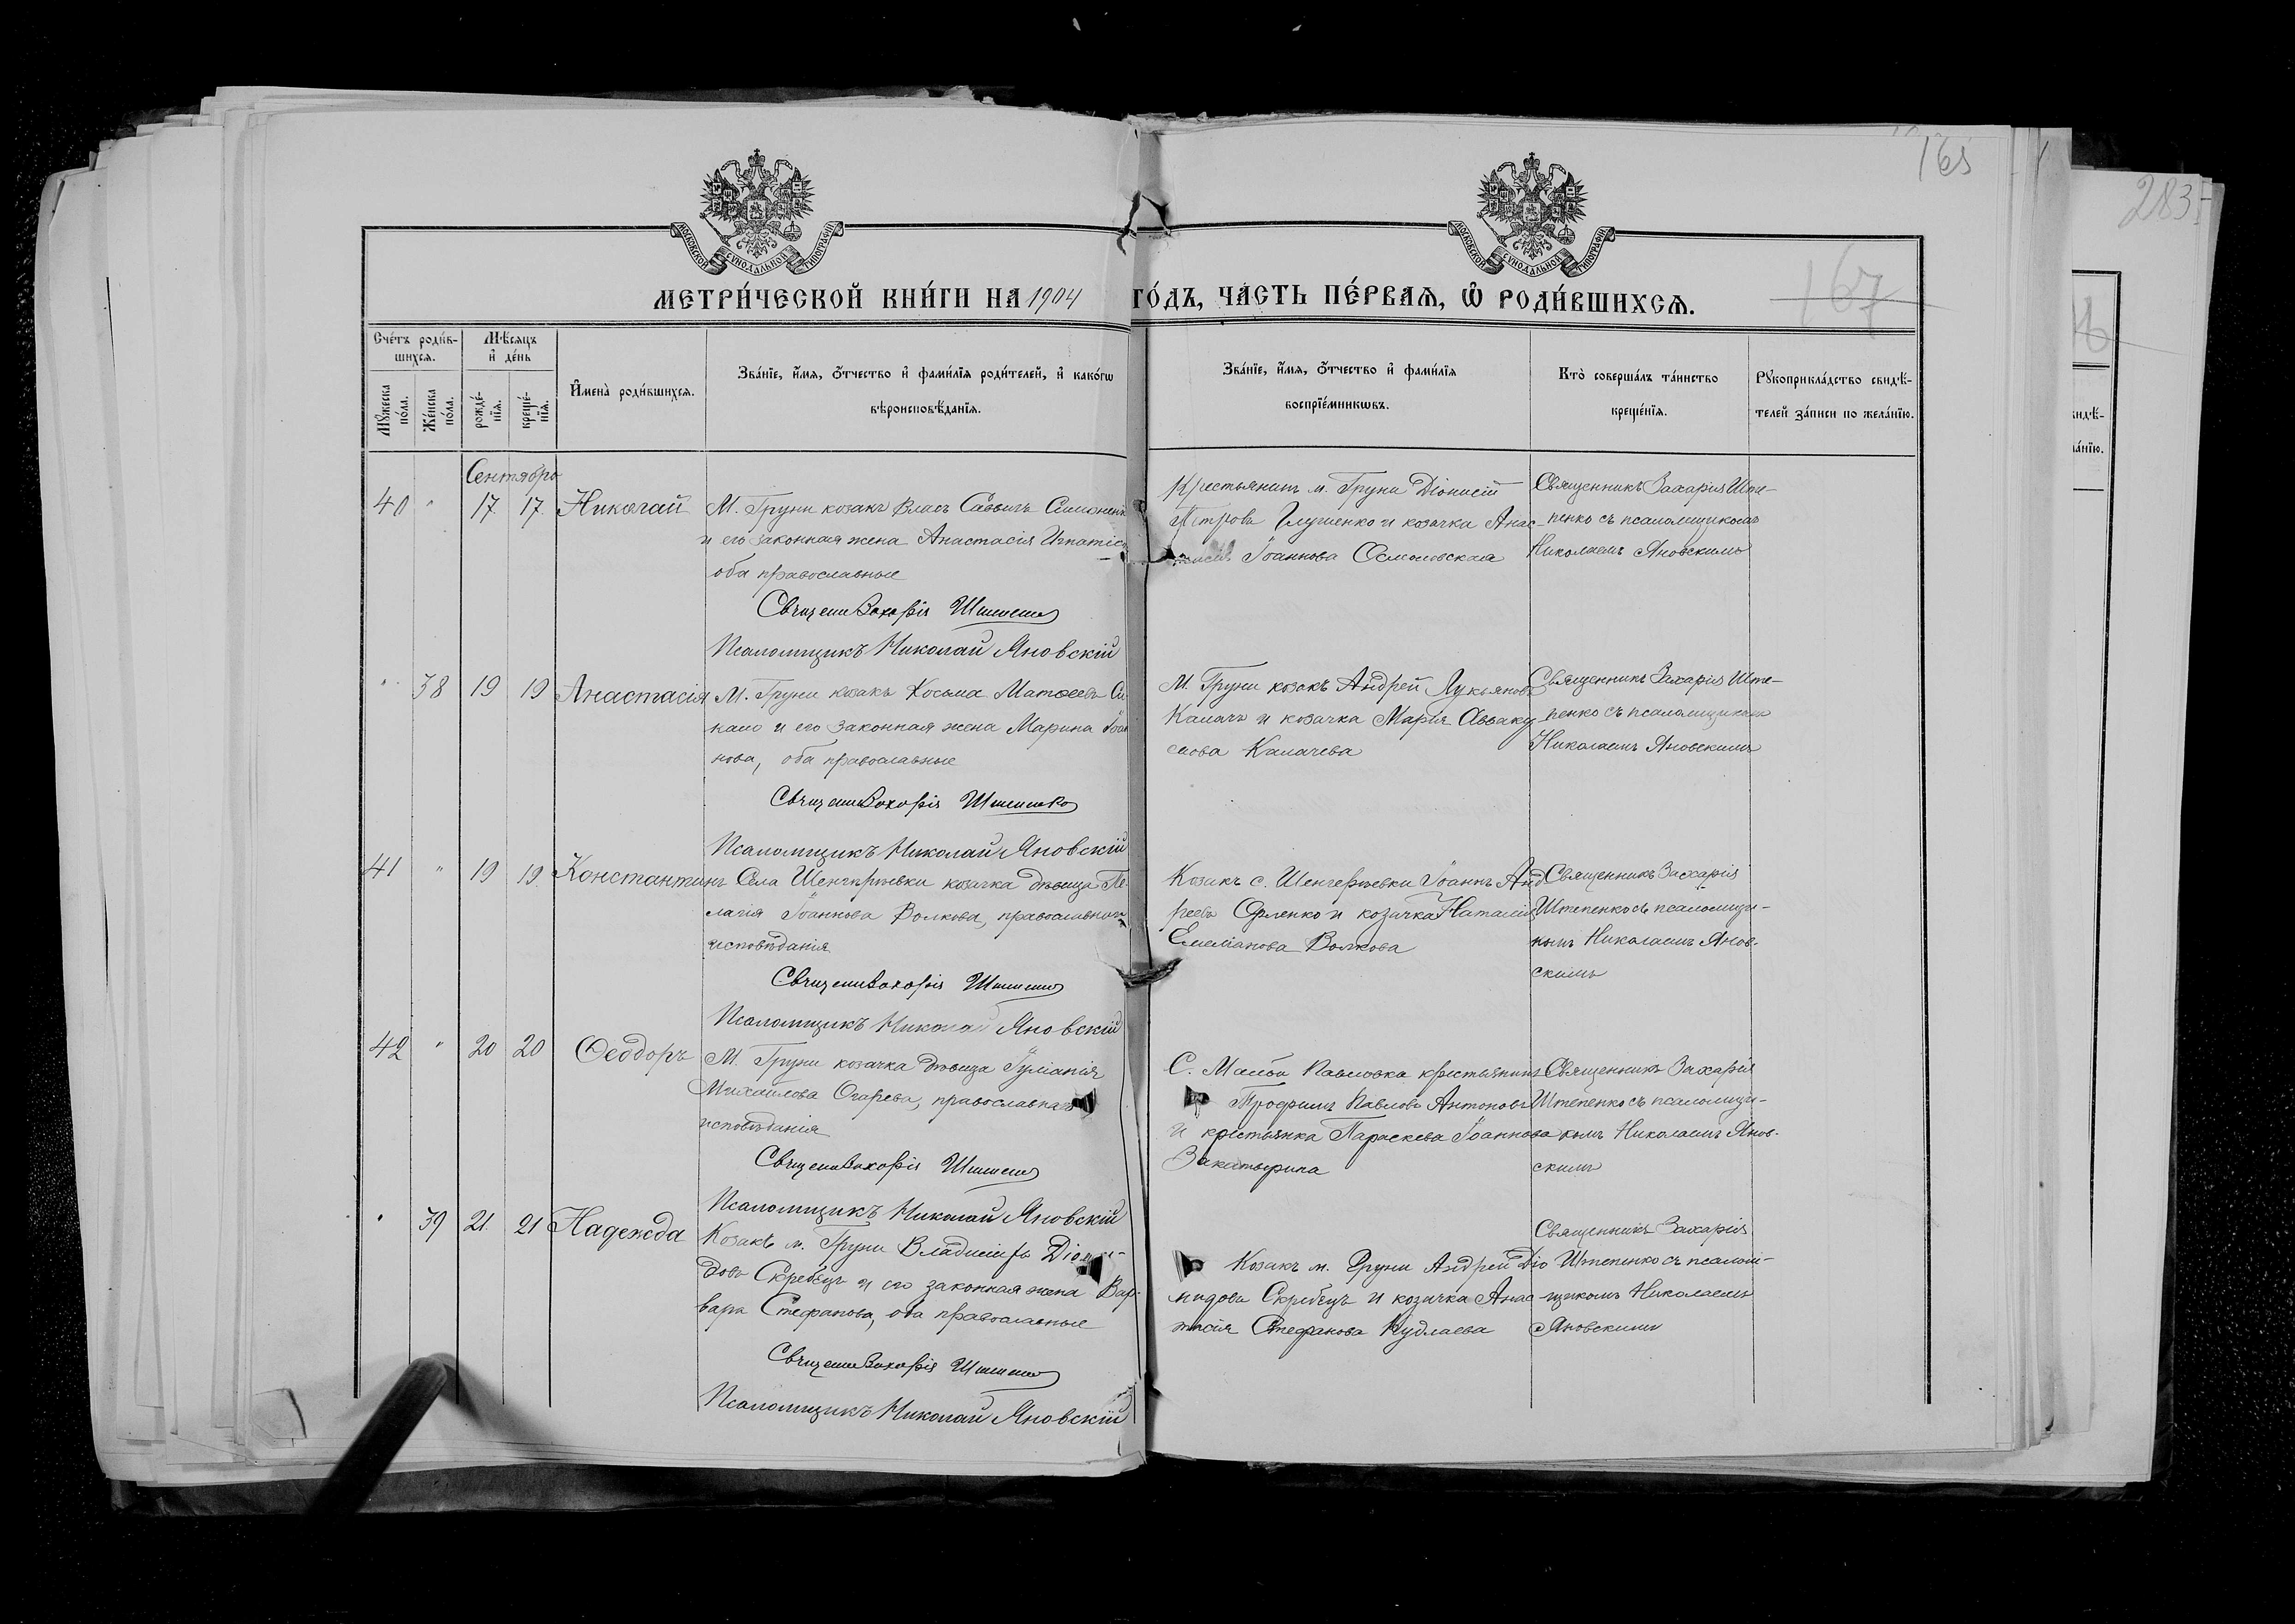 165
283
167
МОСКОВСКОЙ СѴНОДАЛЬНОЙ ТИПОГРАФІИ
МОСКОВСКОЙ СѴНОДАЛЬНОЙ ТИПОГРАФІИ
МЕТРИ́ЧЕСКОЙ КНИ́ГИ НА 1904 ГО́ДЪ, ЧА́СТЬ ПЕ́РВАѦ, Ѡ РОДИ́ВШИХСѦ.
Сче́тъ роди́в-
шихсѧ.
Мѣ́сяцъ
и҆ де́нь
Мꙋ́жеска по́ла.
Же́нска по́ла.
рожде́-
нїѧ.
креще́-
нїѧ.
И҆мена̀ роди́вшихсѧ.
Зва́нїе, и҆́мѧ, ѻ҆́тчество и҆ фами́лїѧ роди́телей, и҆ како́гѡ
вѣроисповѣ́данїѧ.
Зва́нїе, и҆́мѧ, ѻ҆́тчество и҆ фами́лїѧ
воспрїе́мникѡвъ.
Кто̀ соверша́лъ та́инство
креще́нїѧ.
Рꙋкоприкла́дство свидѣ́-
телей за́писи по жела́нїю.
Сентябрь
40 " 17 17 Николай
М. Груни козакъ Власъ Саввичъ
и его законная жена Анастасія
оба православные
Священ Захарія Штепенко
Псаломщикъ Николай Яновскій
Крестьянинъ м. Груни Діонисій
Петровъ Глущенко и козачка Анас-
Іоаннова Осмоловская
Священникъ Захарія Ште-
пенко съ псаломщикомъ
Николаемъ Яновскимъ
" 38 19 19 Анастасія
М. Груни козакъ Косьма Матѳеевъ Си-
нало и его законная жена Марина Іоан
нова, оба православные
Священ Захарія Штепенко
Псаломщикъ Николай Яновскій
М. Груни козакъ Андрей Лукьяновъ
Калачъ и козачка Марія Авваку
мова Калачева
Священникъ Захарія Ште-
пенко съ псаломщикомъ
Николаемъ Яновскимъ
41 " 19 19 Константинъ
Села козачка дѣвица Пе-
лагія Іоаннова Волкова, православнаго
исповѣданія
Священ Захарія Штепенко
Псаломщикъ Николай Яновскій
Козакъ с. Іоаннъ Анд
реевъ и козачка Наталія
Емеліанова Волкова
Священникъ Захарія
Штепенко съ псаломщи-
комъ Николаемъ Янов-
скимъ
42 " 20 20 Ѳеодоръ
М. Груни козачка дѣвица Іуліанія
Михайлова Огарева, православнаго
исповѣданія
Священ Захарія Штепенко
Псаломщикъ Николай Яновскій
С. Малой Павловка крестьянинъ
Трофимъ Павловъ Антоновъ
и крестьянка Параскева Іоаннова
Священникъ Захарія
Штепенко съ псаломщи-
комъ Николаемъ Янов-
скимъ
" 39 21 21 Надежда
Козакъ м. Груни Владиміръ Діоми-
довъ Скребецъ и его законная жена Вар-
вара Стефанова, оба православные
Священ Захарія Штепенко
Псаломщикъ Николай Яновскій
Козакъ м. Груни Андрей Діо
мидовъ Скребецъ и козачка Анас
тасія Стефанова Кудлаева
Священникъ Захарія
Штепенко съ псалом-
щикомъ Николаемъ
Яновскимъ